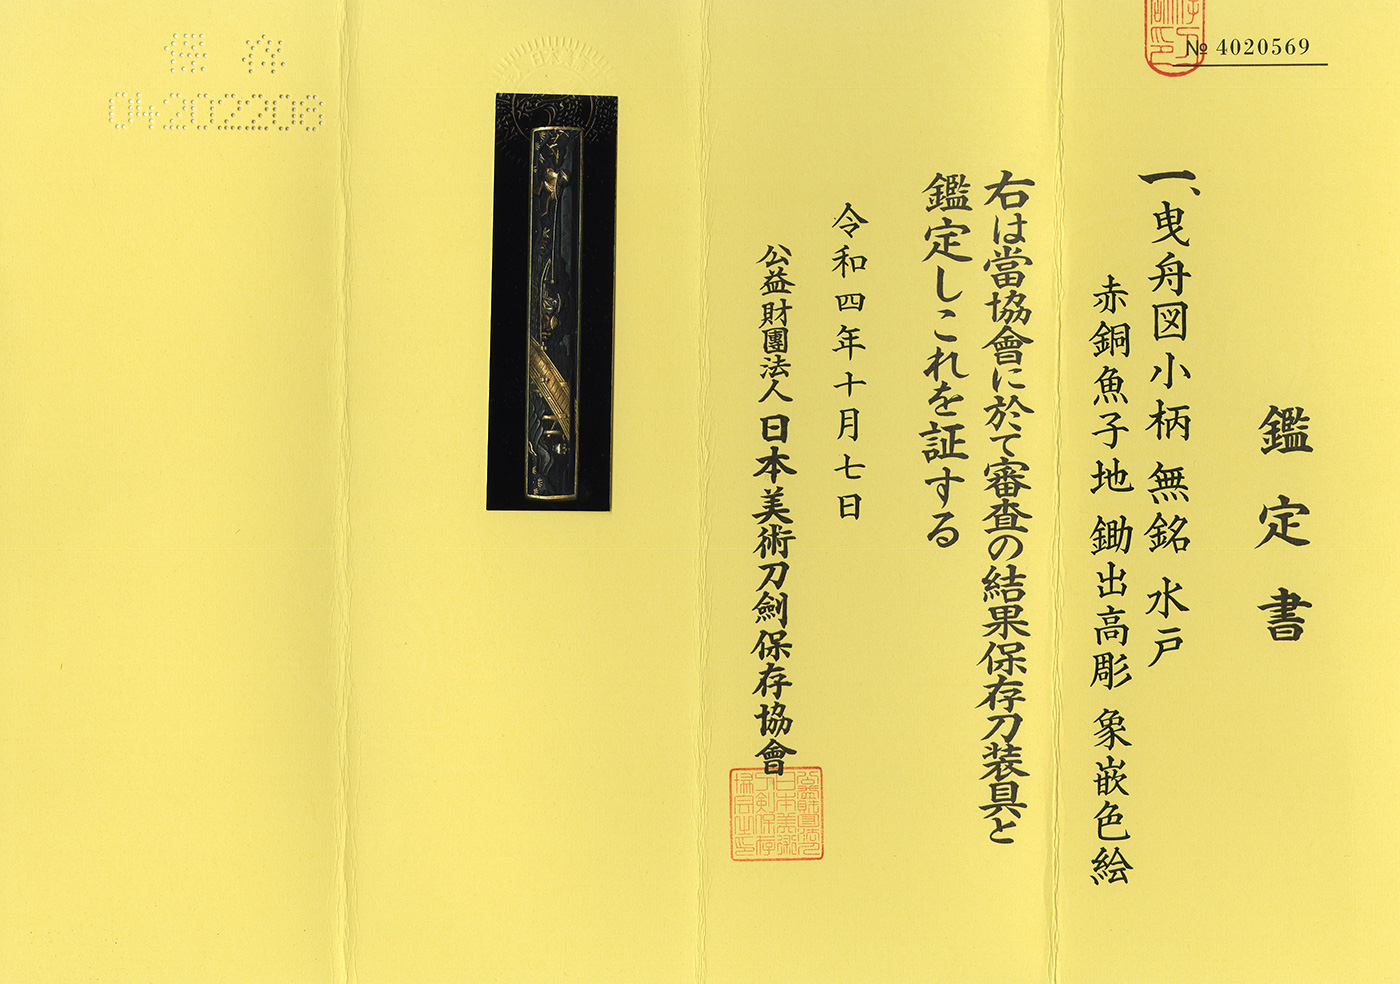 № 4020569
鑑定書
一、曳舟図小柄 無銘 水戸
赤銅魚子地 鋤出高彫 象嵌色絵
右は當協會に於て審査の結果保存刀装具と
鑑定しこれを証する
令和四年十月七日
公益財團法人 日本美術刀劍保存協會
保存
04202208